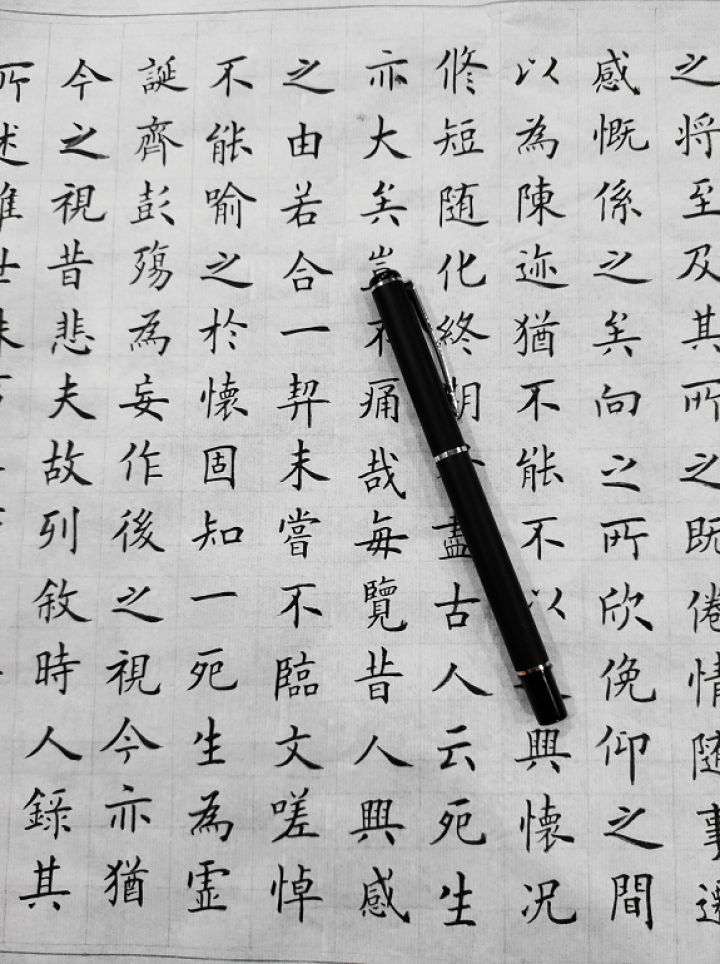 之将至及其所之既倦情随事遷
感慨係之矣向之所欣俛仰之間
以為陳迹猶不能不以興懷况
修短随化終期盡古人云死生
亦大矣豈不痛哉每覽昔人興感
之由若合一契未嘗不臨文嗟悼
不能喻之於懷固知一死生為虛
誕齊彭殤為妄作後之視今亦猶
今之視昔悲夫故列敘時人錄其
所述雖世殊